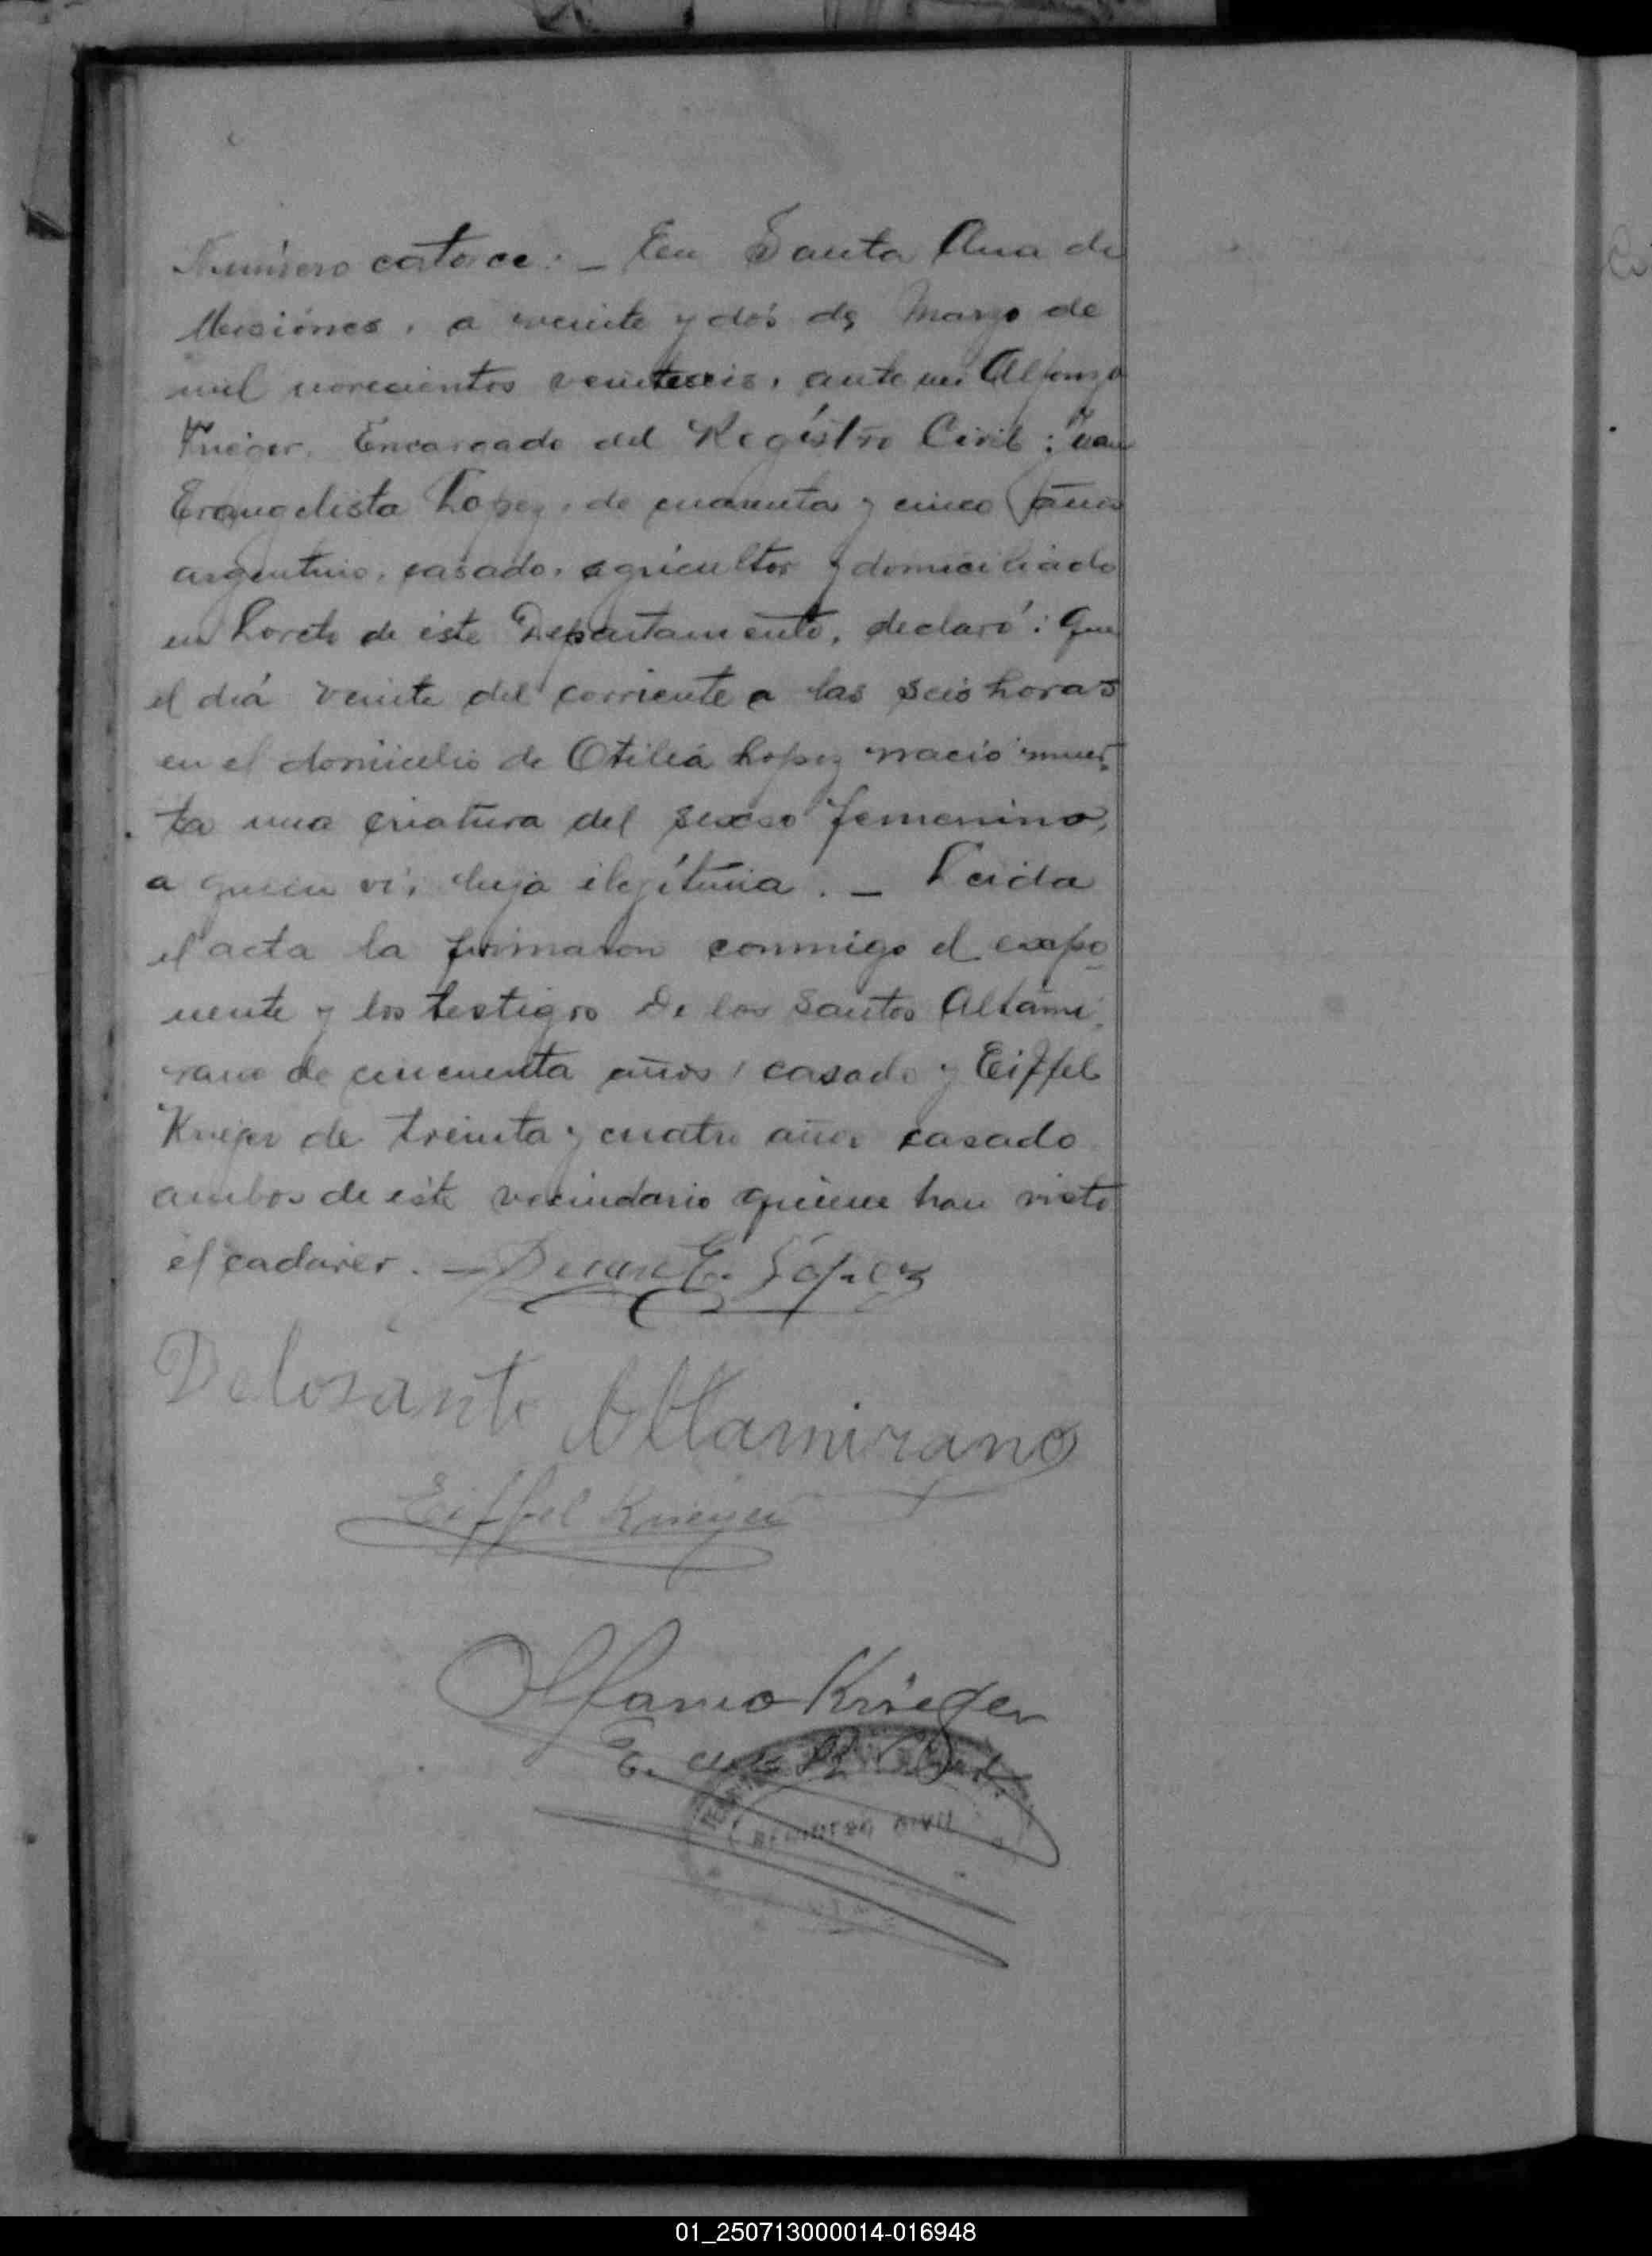 Número catorce: _ En Santa Ana de
Misiónes, a veinte y dós de Marzo de
mil novecientos veinteseis, ante mi Alfonzo
Krieger, Encargado del Regístro Civil; Juan
Evangelista Lopez, de cuarenta y cinco años
argentino, casado, agricultor y domiciliado
en Loreto de éste Departamento, declaró: Que
el diá veinte del corriente a las seis horas
en el domicilio de Otiliá Lopez nació muer_
ta una criatura del sexso femenino,
a quien ví, hija ilegítima. _ Leida
el acta la firmaron conmigo el expo_
nente y los testigos De los Santos Altami_
rano de cincuenta años, casado y Eiffel
Krieger de treinta y cuatro años casado
ambos de éste vecindario quiene han visto
el cadaver. _ Juan E. López
Delosanto Altamirano
Eiffel Krieger
Alfonso Krieger
REGISTRO CIVIL
01_250713000014-016948